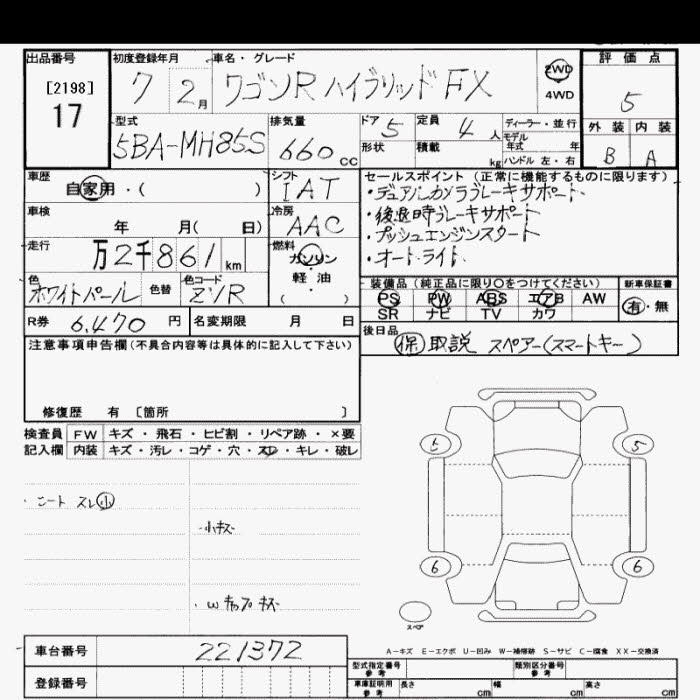 出品番号
[2198]
17
初度登録年月
7 2月
車名・グレード
ワゴンR ハイブリッド FX
2WD
4WD
評価点
5
外装 内装
B A
型式
5BA-MH85S
排気量
660 cc
ドア 5
形状
定員 4人
積載 kg
ディーラー・並行
モデル年式 年
ハンドル 左・右
車歴
自家用・( )
シフト
IAT
車検
年 月( 日)
冷房
AAC
走行
万2千861km
燃料
ガソリン
・
軽油
( )
色
ホワイトパール
色替
色コード
ZVR
R券 6,470円
名変期限 月 日
セールスポイント(正常に機能するものに限ります)
・デュアルカメラブレーキサポート
・後退時ブレーキサポート
・プッシュエンジンスタート
・オートライト
装備品(純正品に限り○をつけてください)
PS PW ABS エアB AW
SR ナビ TV カワ
新車保証書
有・無
後日品
保 取説 スペアー(スマートキー)
注意事項申告欄(不具合内容等は具体的に記入して下さい)
修復歴 有 〔箇所 〕
検査員記入欄
FW キズ・飛石・ヒビ割・リペア跡・×要
内装 キズ・汚レ・コゲ・穴・スレ・キレ・破レ
・ニート スレ小
・小キズ
・W キャップ キズ
5
6
6
スペア
A-キズ E-エクボ U-凹み W-補修跡 S-サビ C-腐食 XX-交換済
車台番号 221372
登録番号
型式指定番号 参考
類別区分番号 参考
車庫証明用 参考
長さ cm 幅 cm 高さ cm